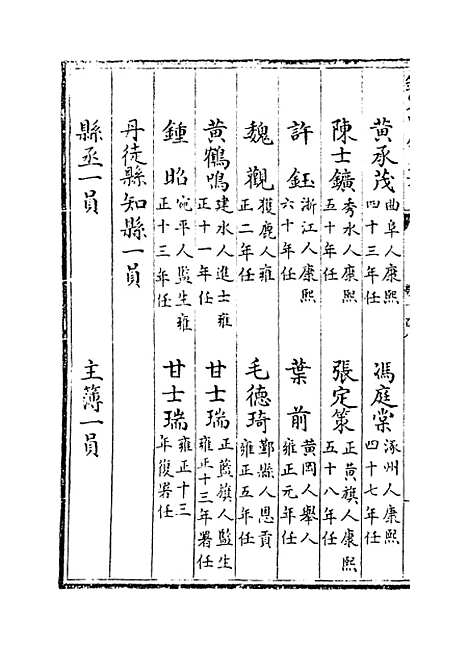 黃承茂曲阜人康熙四十三年任　馮庭棠涿州人康熙四十七年任
陳士鑛秀水人康熙五十年任　張定策正黃旗人康熙五十八年任
許鈺浙江人康熙六十年任　葉前黃岡人舉人雍正元年任
魏觀獲鹿人雍正二年任　毛德琦鄞縣人恩貢雍正五年任
黃鶴鳴建水人進士雍正十一年任　甘士瑞正藍旗人監生雍正十三年署任
鍾昭宛平人監生雍正十三年任　甘士瑞雍正十三年復署任
丹徒縣知縣一員
縣丞一員　主簿一員